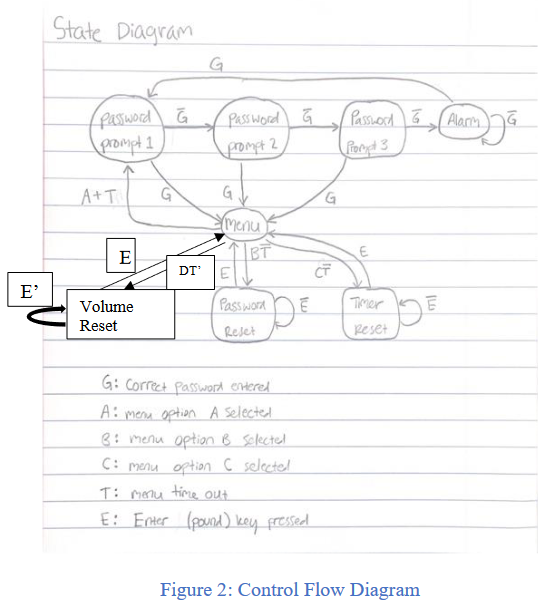 State Diagram
G
Password prompt 1
G̅
Password prompt 2
G̅
Password Prompt 3
G̅
Alarm
G̅
A+T
G
G
G
Menu
E
DT'
E
BT̅
CT̅
E
E'
Volume Reset
Password Reset
E̅
Timer Reset
E̅
G: Correct password entered
A: menu option A selected
B: menu option B selected
C: menu option C selected
T: menu time out
E: Enter (pound) key pressed
Figure 2: Control Flow Diagram